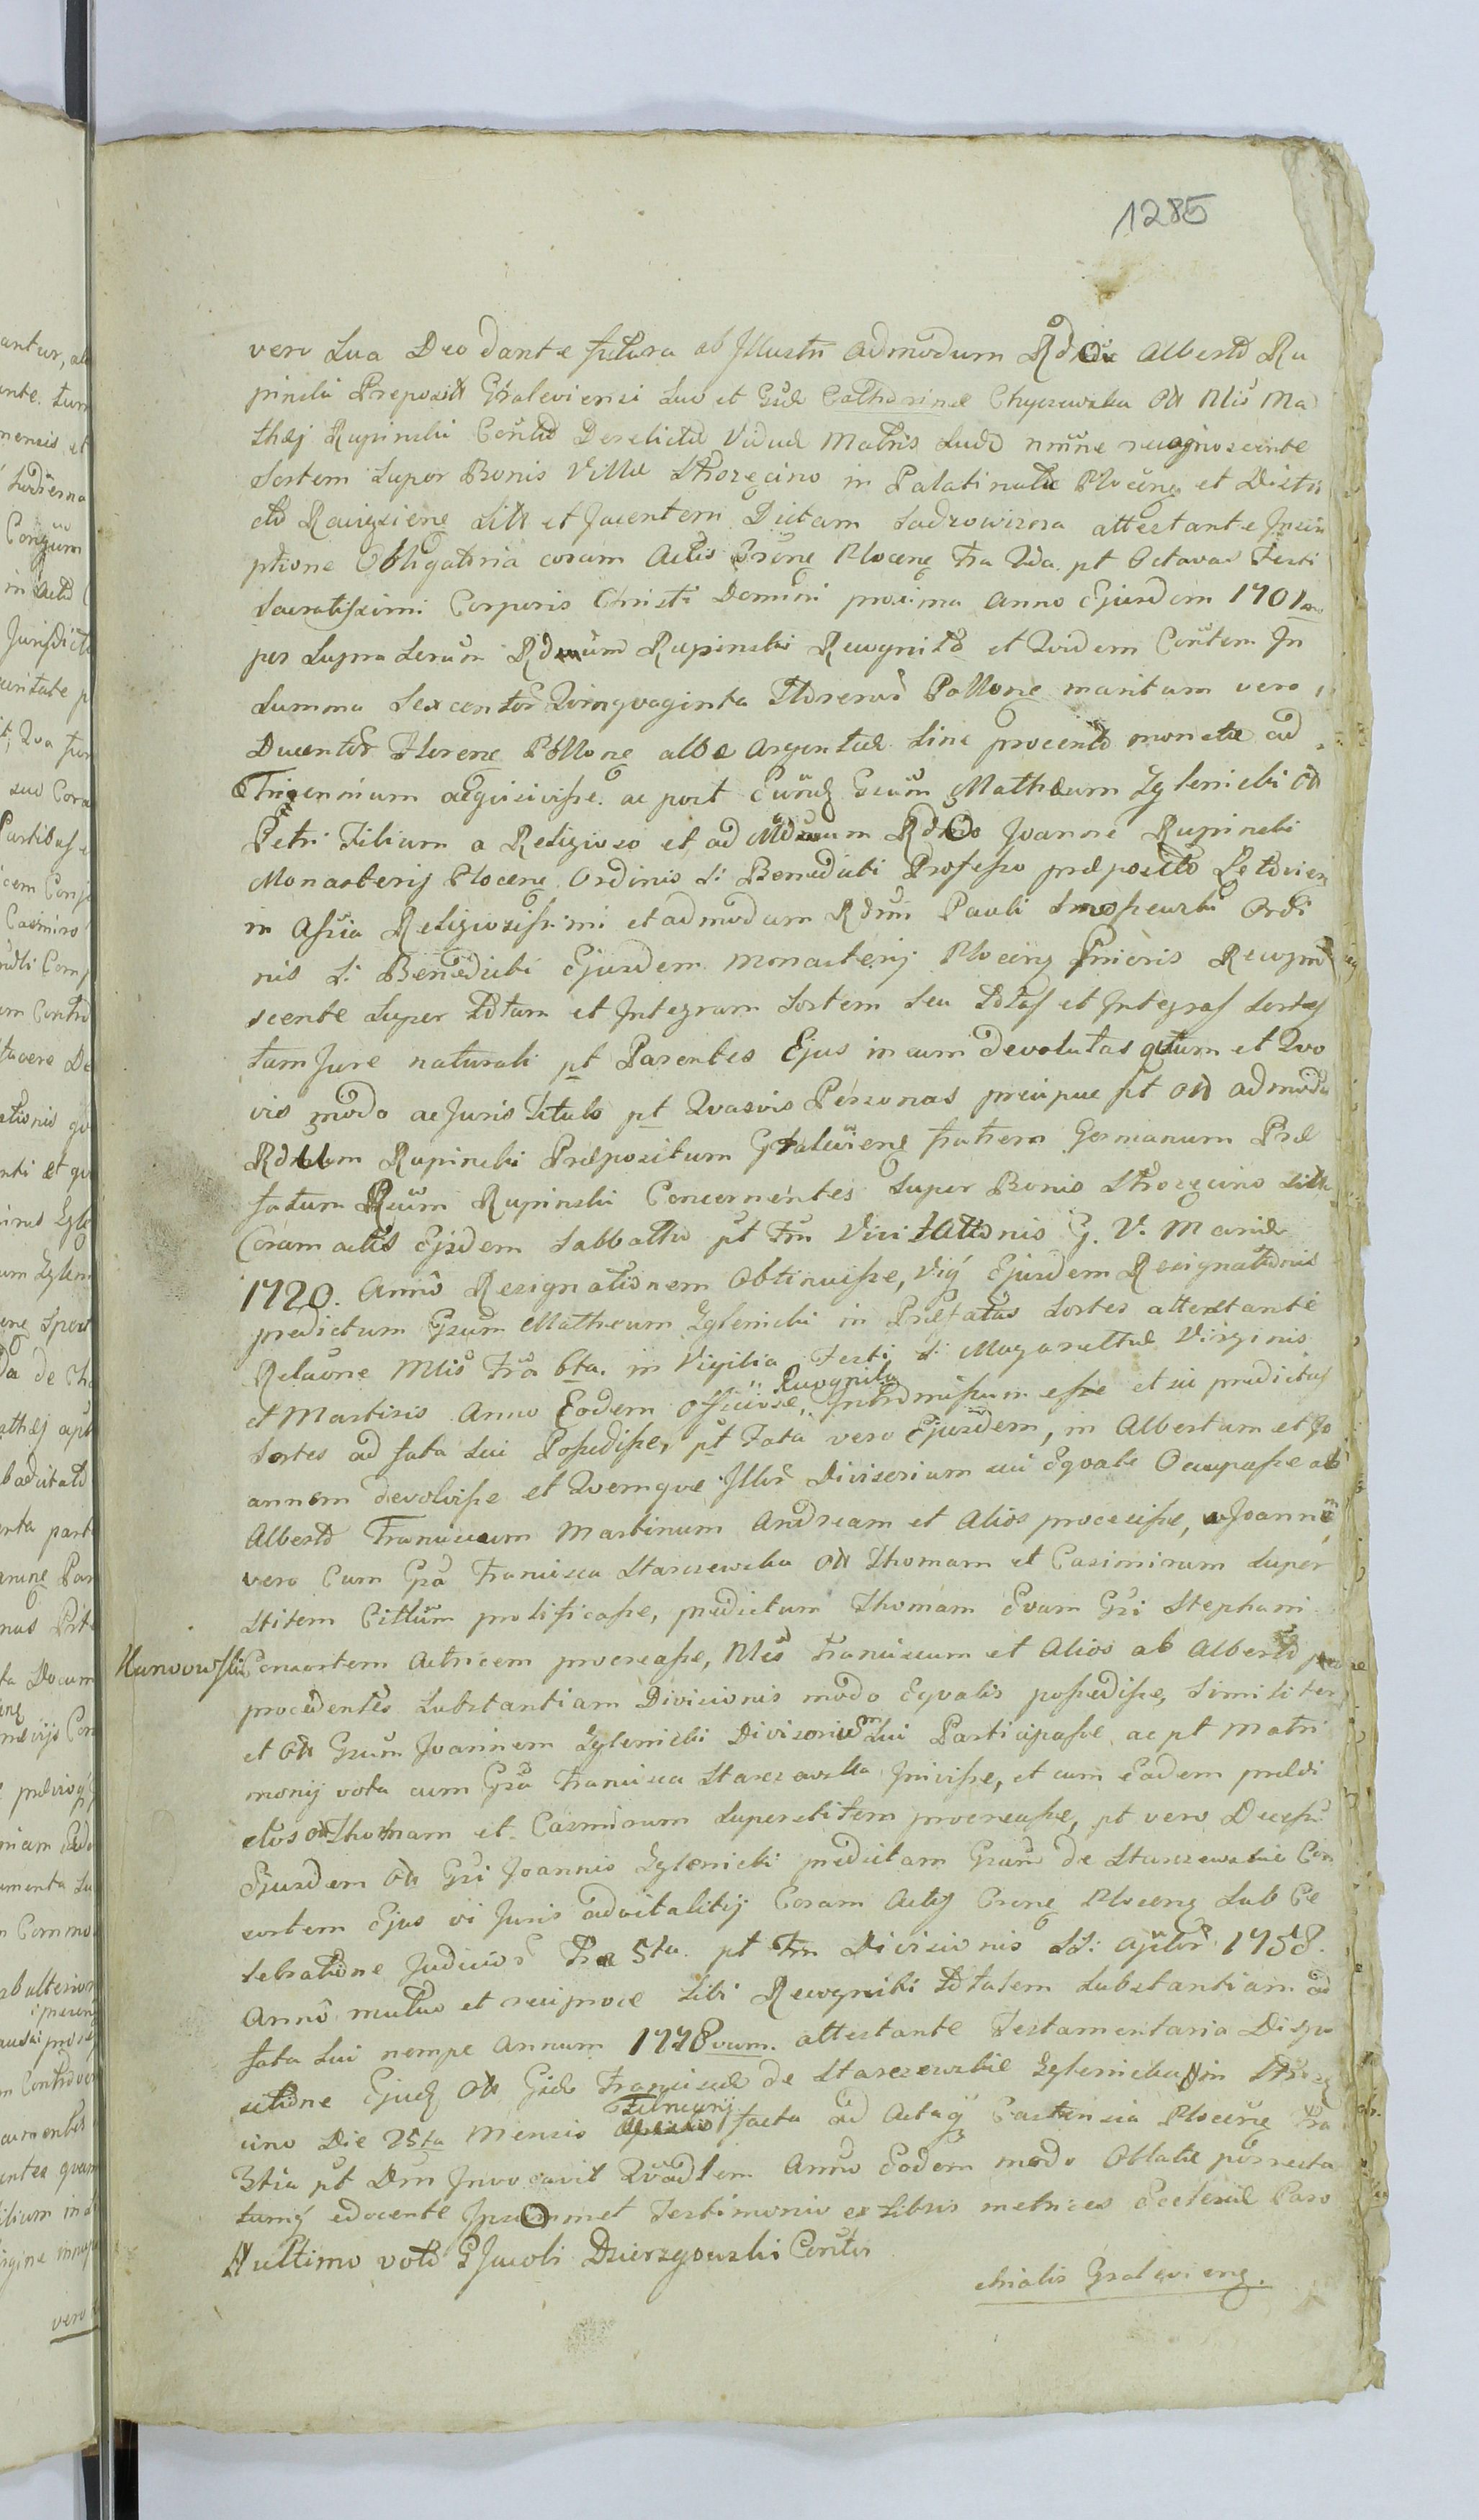 1285
vero Sua Deo dante futura ab Illustri admodum Rdo Alberto Ru
pinski Preposito Graleviensi suo et Gsae Catharinae Chyczewska olim Mcis Ma
thaej Rupinski Consortis Derelictae Viduae Matris suae nmine recognoscente
Sortem super Bonis Villae Strozęcino in Palatinatu Ploceng et Distri
ctu Raciązieng sitis et Jacentem Dictam Sadzowizna attestante Inscri
ptione Obligatoria coram Actis Prone Plocene Fra 2da. pt Octavas Festi
Sacratissimi Corporis Christi Domini proxima Anno Ejusdem 1701mo
per supra Rdum Rupinski Recognito et Quidem Contem In
Summa Sexcentor Quinquaginta Florenos Pollone maritum vero
Ducentor Florene Pollone albe argenteae sine procento monetae ad
Trigennium acquisivisse. ac post Eund Gsum Mathaeum Zglenicki olim
Petri Filium a Religioso et ad Mdum Rdo Joanne Rupinski
Monasterij Plocene Ordinis S: Benedicti Professo praeposito
in Assia Religiosissimi et admodum Rdmi Pauli Ordi
nis S: Benedicti Ejusdem monasterij Ploceng Prioris Recogno
scente super Totam et Integram Sortem seu Totas et Integras Sortes
tam Jure naturali pt Parentes Ejus in eum devolutas qtum et Quo
vis modo ac Juris Titulo pt Quasvis Personas precipue pt olim admodu
Rdum Rupinski Praepositum Graleviene fratrem Germanum Prae
fatum Rupinski Concernentes super Bonis Strozęcino sitis
Coram actis Ejsdem Sabbatho pt Fm Visitationis B. V. Mariae
1720. Anno Resignationem Obtinuisse, Vig Ejusdem Resignationis
predictum Gsum Mathaeum Zglenicki in Praefatas Sortes attestante
Relaone Mtis Fra 6ta. in Vigilia Festi S: Magarettae Virginis
et Martiris Anno Eodem officiose, Recognita Intromissum esse et sic predictas
Sortes ad fata sui Possedisse, pt Fata vero Ejusdem, in Albertum et Jo
annem devolvisse et Quemque Illor Divisorium sui Equale Occupasse ab
Alberto Franciscum Martinum Andream et Alios processisse, Joannem
vero Cum Gsa Francisca Starczewska olim Thomam et Casimirum Super
stitem Cittum prolificasse, predictum Thomam Evam Gsi Stephani
Kunoowski Consortem Actricem procreasse, Mcis Franciscum et Alios ab Alberto
procedentes Substantiam Divisionis modo Equalis possedisse, similiter
et olim Gsum Joannem Zglenicki Divisorium sui Participasse ac pt Matri
monij vota cum Gsa Francisca Starczewska Inivisse, et cum Eadem praedi
ctos olim Thomam et Casmirum Superstitem procreasse, pt vero Decess
Ejusdem olim Gsi Joannis Zglenicki predictam Gsam de Starczewskie Con
sortem Ejus vi Juris advitalitij Coram Actis Crene Ploceng sub Ce
lebratione Judicior Fra 5ta. pt Fm Divisionis SS: Apltor 1758.
Anno mutuo et reciproce Sibi Recogniti Totalem Substantiam ad
fata sui nempe Annum 1778vum. attestante Testamentaria Dispo
sitione Ejusd olim Gsae Franciscae de Starczewskie Zglenicka in Strozę
cino Die 25ta Mensis Februarij facta ad Actaq Castrensia Plocene Fra
3tia pt Dm Invocavit Quadlem Anno Eodem modo Oblatae porrecta
tumq edocente Ipsummet Testimonio ex Libris metrices Ecclesiae Paro
# ultimo voto G Jacobi Dzierzgowski Contis
chialis Gralevieng.